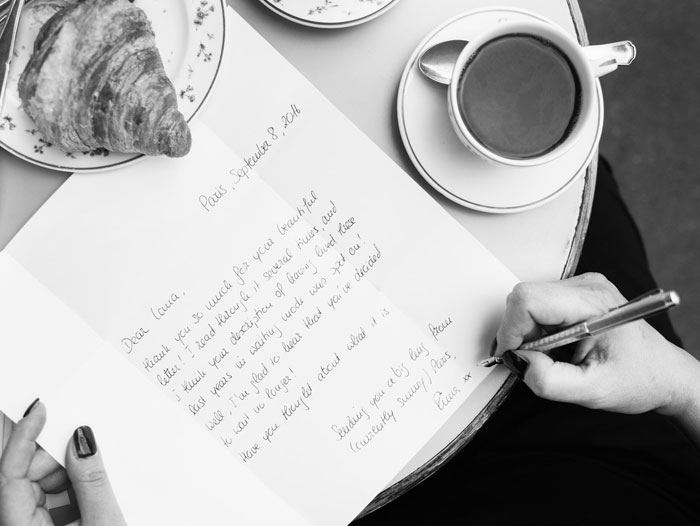 Paris, September 8, 2016
Dear Lana,
thank you so much for your beautiful
letter! I read through it several times, and
i think your description of having lived these
past years in waiting mode was spot on!
Well, I'm glad to hear that you've decided
to wait no longer!
Have you thought about what it is
Sending you a big hug from
(currently sunny) Paris.
xx